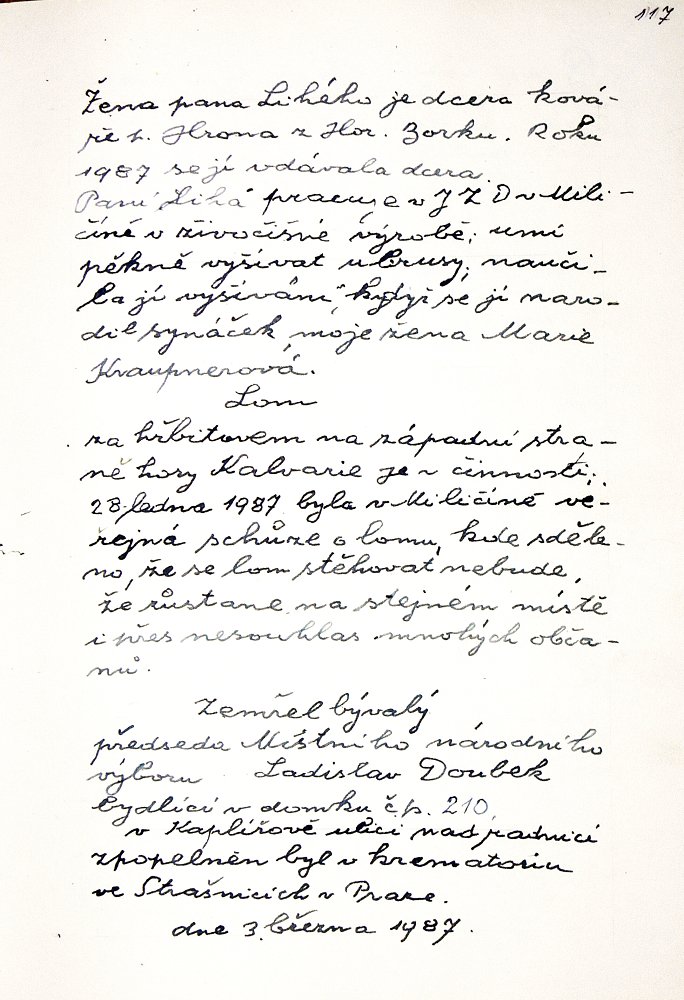 117
Žena pana Lihého je dcera ková-
ře p. Hrona z Hor. Borku. Roku
1987 se jí vdávala dcera.
Paní Lihá pracuje v JZD v Mili-
číně v živočišné výrobě; umí
pěkně vyšívat ubrusy; nauči-
la jí vyšívání, když se jí naro-
dil synáček, moje žena Marie
Kraupnerová.
Lom
za hřbitovem na západní stra-
ně hory Kalvarie je v činnosti;
28. ledna 1987 byla v Miličíně ve-
řejná schůze o lomu, kde sděle-
no, že se lom stěhovat nebude,
že zůstane na stejném místě
i přes nesouhlas mnohých obča-
nů.
Zemřel bývalý
předseda Místního národního
výboru Ladislav Doubek
bydlící v domku č.p. 210.
v Kaplířově ulici nad radnicí
zpopelněn byl v krematoriu
ve Strašnicích v Praze.
dne 3. března 1987.